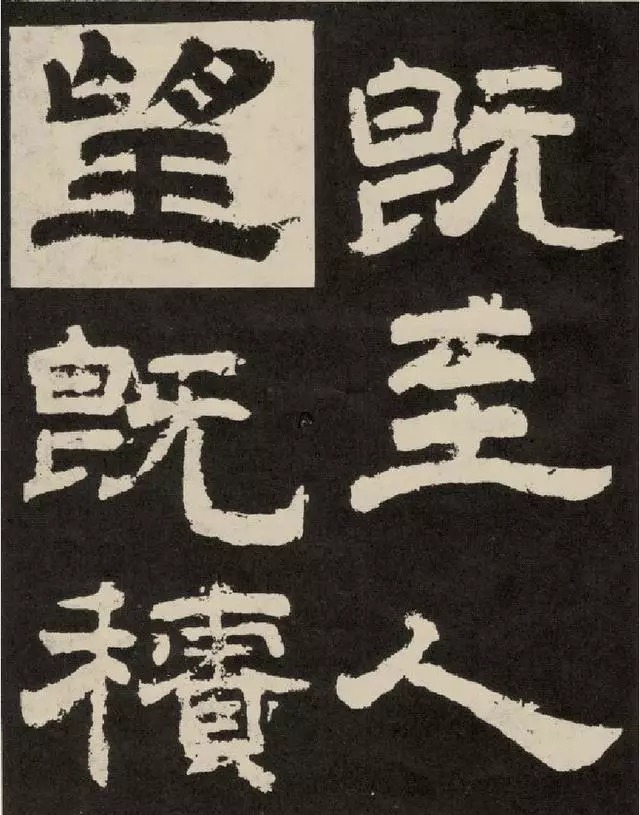 既至人
望既積